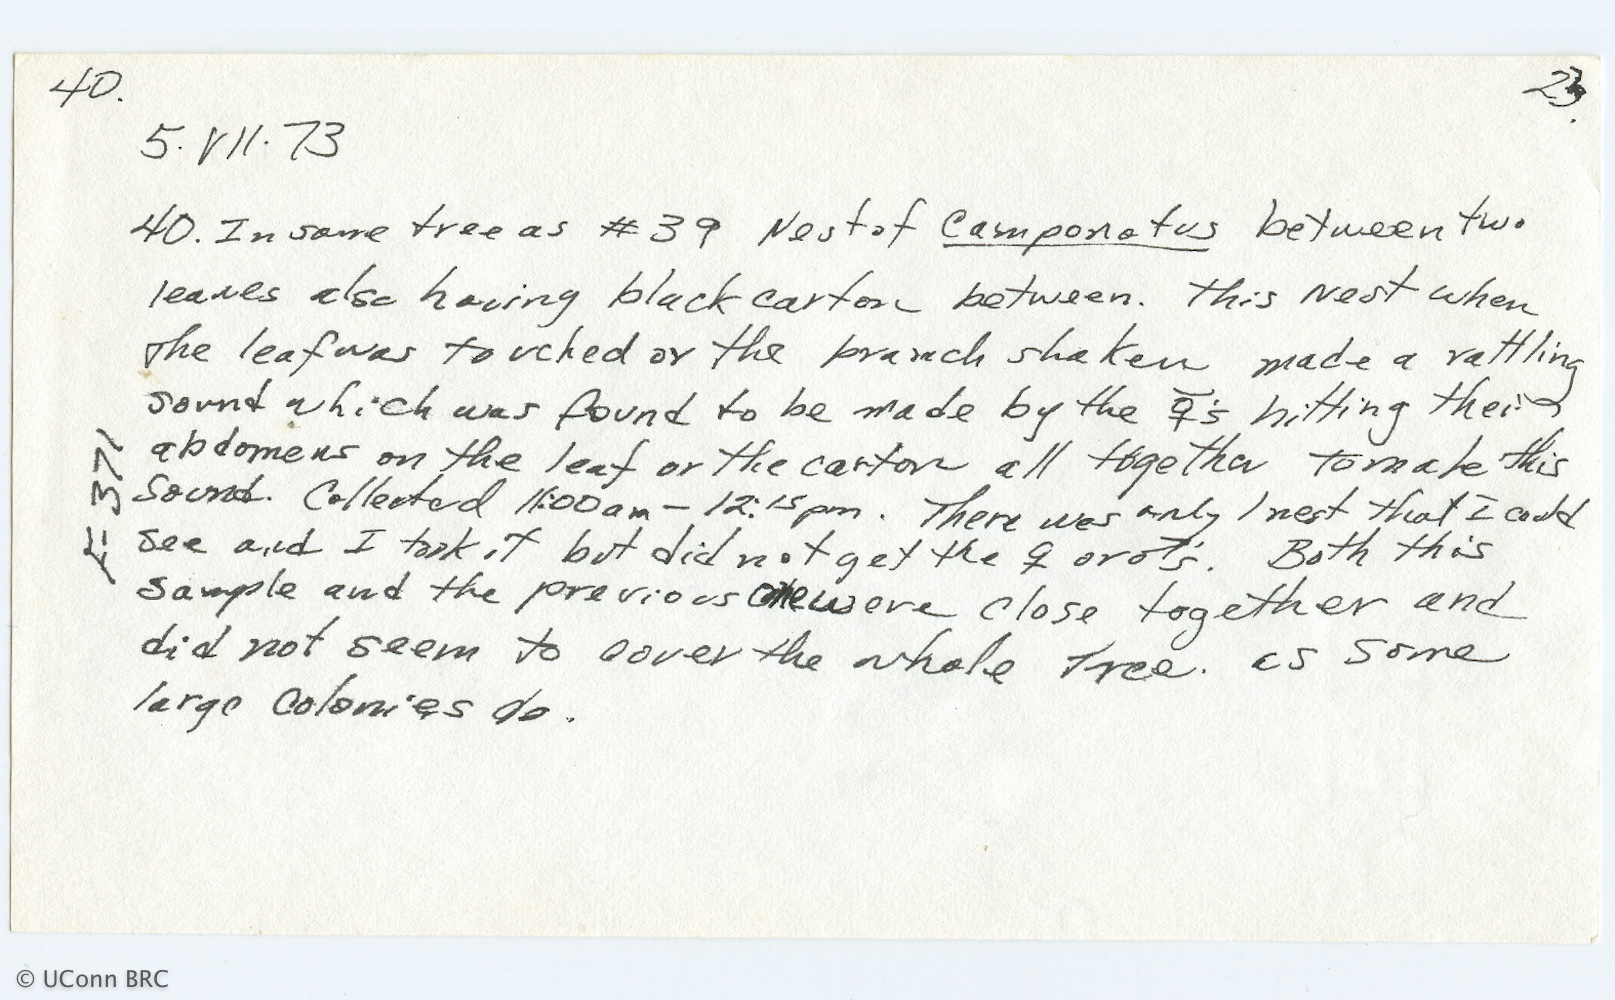 40.
23.
5.VII.73
40. In same tree as #39 Nest of Camponotus between two
leaves also having black carton between. This nest when
the leaf was touched or the branch shaken made a rattling
sound which was found to be made by the ☿'s hitting their
abdomens on the leaf or the carton all together to make this
sound. Collected 11:00 am - 12:15 pm. There was only 1 nest that I could
see and I took it but did not get the ♀ or ♂'s. Both this
sample and the previous one were close together and
did not seem to cover the whole tree. as some
large colonies do.
371
© UConn BRC